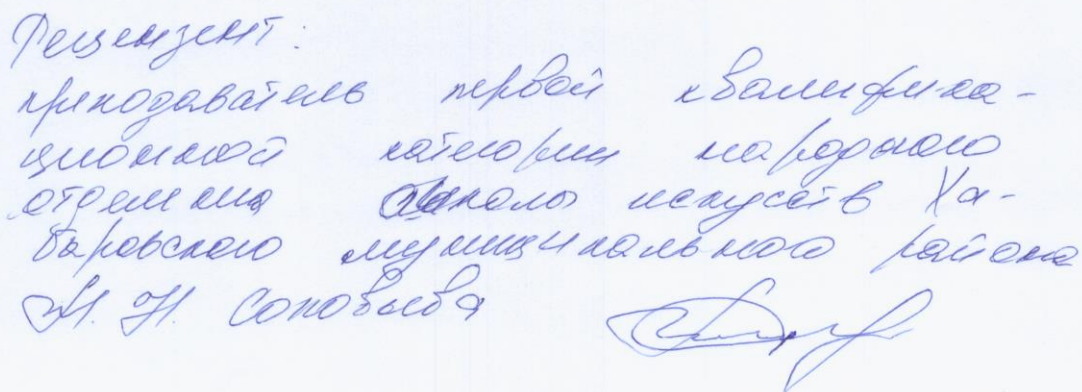 Рецензент:
преподаватель первой квалифика-
ционной категории народного
отделения школы искусств Ха-
баровского муниципального района
Н. Н. Соловьева